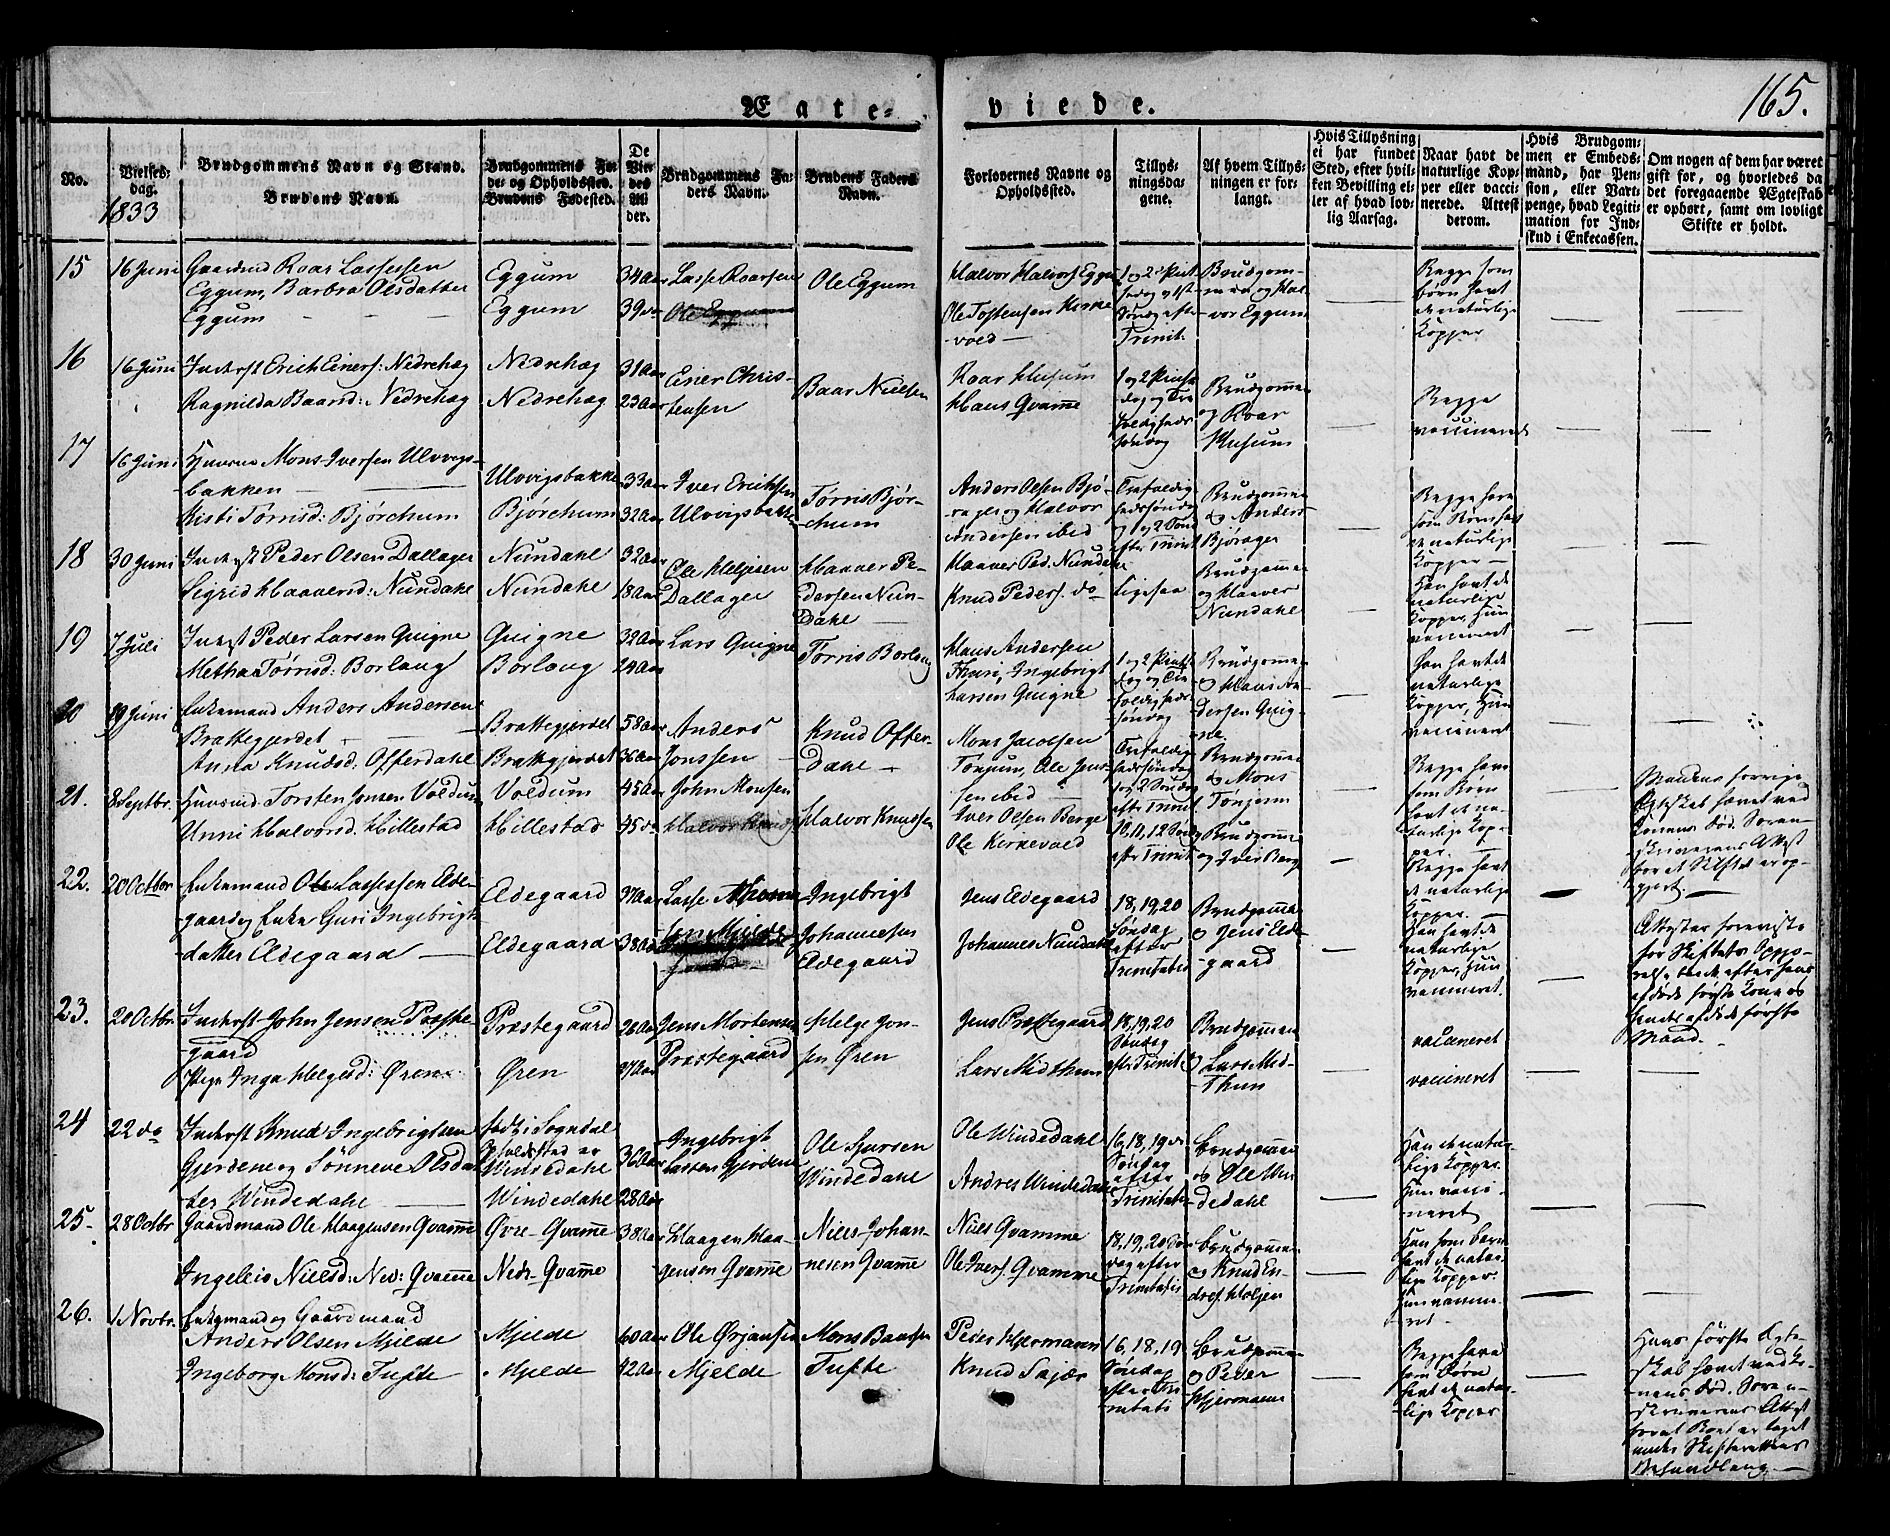 165.
Ægte- viede.
No.
Vielses-
dag.
1833
Brudgommens Navn og Stand.
Brudens Navn.
Brudgommens Fø-
de- og Opholdssted.
Brudens Fødested.
De
Vie-
des
Al-
der.
Brudgommens Fa-
ders Navn.
Brudens Faders
Navn.
Forlovernes Navne og
Opholdssted.
Tillys-
ningsda-
gene.
Af hvem Tillys-
ningen er for-
langt.
Hvis Tillysning
ei har fundet
Sted, efter hvil-
ken Bevilling el-
ler af hvad lov-
lig Aarsag.
Naar havt de
naturlige Kop-
per eller vacci-
nerede. Attest
derom.
Hvis Brudgom-
men er Embeds-
mand, har Pen-
sion, eller Vart-
penge, hvad Legiti-
mation for Ind-
skud i Enkecassen.
Om nogen af dem har været
gift før, og hvorledes da
det foregaaende Ægteskab
er ophørt, samt om lovligt
Skifte er holdt.
15
16 Juni
Gaardmd Roar Lassesen
Eggum, Barbra Olsdatter
Eggum
Eggum
Eggum
34 Aar
39 do
Lasse Roarsen
Ole Eggum
Ole Eggum
Halvor Halvors Eggum
Ole Tostensen Kirke
vold
1 og 2 Pint
sedag og 1st
Søndag efter
Trinit.
Brudgom-
men og Hal-
vor Eggum
Begge som
børn havt
de naturlige
Kopper
16
16 Juni
Inderst Erich Einers: Nedrehæg
Ragnilda Baarsd: Nedrehæg
Nedrehæg
Nedrehæg
31 Aar
23 Aar
Einer Chris-
tensen
Baar Nielsen
Roar Husum
Hans Qvamme
1 og 2 Pintse
dag og Tre
foldigheds
søndag
Brudgommen
og Roar
Husum
Begge
vaccineret
17
16 Juni
Huusmd Mons Iversen Ulvigs-
bakken
Kisti Torrisd: Bjørchum
Ulvigsbakke
Bjørchum
33 Aar
32 Aar
Iver Erichsen
Ulvigsbakke
Tørris Bjør-
chum
Anders Olsen Bjø-
rager og Halvor
Andersen ibid
Trefoldig
hedssøndag
og 1 og 2 Sønd
efter Trinit
Brudgommen
og Anders
Bjørager
Begge have
som Børn havt
de naturlige
Kopper
18
30 Juni
Inderst Peder Olsen Dallager
Sigrid Haaversd: Nundahl
Nundahl
Nundahl
32 Aar
18 Aar
Ole Heljesen
Dallager
Haaver Pe-
dersen Nun-
Dahl
Haaver Ped. Nundahl
Knud Peders. do
Ligesaa
Brudgommen
og Haaver
Nundahl
Han havt de
naturlige
Kopper, Hun
vaccineret
19
7 Juli
Inderst Peder Larsen Quigne
Metha Tørrisd: Borlaug
Quigne
Borlaug
32 Aar
24 Aar
Lars Quigne
Torris Borlaug
Hans Andersen
Thuri, Ingebrigt
Larsen Quigne
1 og 2 Pintse
dag og Tre
foldighed
søndag
Brudgommen
og Hans An-
dersen Quig-
ne.
Han havt de
naturlige
Kopper, Hun
vaccineret
20
19 Juni
Enkemand Anders Andersen
Brattegjerdet
Anna Knudsd: Offerdahl
Brattegjerdet
Brattegjerdet
58 Aar
36 Aar
Anders
Jonssen
Knud Offer-
Dahl
Mons Jacobsen
Tonjum, Ole Jens-
sen ibid
Trefoldig
hedssøndag
1 og 2 Søndag
efter Trinit
Brudgommen
og Mons
Tønjum
Begge have
som Børn
havt de na-
turlige Kop-
per.
Mandens forrige
Ægteskab hævet ved
Konens Død. Soren-
skriverens Attest
21.
8 Septbr.
Huusmd: Torsten Jonsen Voldum
Unni Halvorsd. Hillestad
Voldum
Hillestad
45 Aar
45 do
John Monsen
Halvor Knuds
Halvor Knudsen
Iver Olsen Berge
Ole Kirkevold
10, 11, 12 Sønd
efter Trinit
Brudgomme
og Iver Berg
Begge havt
de naturlige
Kopper.
22.
20 Octbr
Enkemand Ole Lassesen Elde-
gaard og Enke Guri Ingebrigts
datter Eldegaard
Eldegaard
Eldegaard
37 Aar
38 Aar
Lasse
sen Mjelde
Ingebrigt
Johannesen
Eldegaard
Jens Eldegaard
Johannes Nundahl
18, 19, 20
Søndag
efter
Trinitatis
Brudgomme
og Jens Elde-
gaard
Han havt de
naturlige
Kopper, Hun
vaccineret.
Attester foreviste
for Skiftets Oppe-
afdøde første Kone og
hendes afdøde første
Mand.
23.
20 Octbr.
Inderst John Jensen Præste-
gaard
Pige Inga Helgesd: Øren
Præstegaard
Øren
26 Aar
37 Aar
Jens Mortensen
Præstegaard
Helge Jon-
sen Øren
Jens Præstegaard
Lars Midthun
18, 19, 20
Søndag
eftr Trinit
Brudgommen
og Lars Mid-
Thun
vaccineret
vaccineret
24
22 do
Inderst Knud Ingebrigtsen
Gjerdene og Sønneve Olsdat-
ter Windedahl
født i Sogndal
Opholdssted er
Windedahl
Windedahl
36 Aar
28 Aar
Ingebrigt
Larsen Gjerdene
Ole Sjursen
Windedahl
Ole Windedahl
Andres Windedahl
16, 18, 19 de
Søndag
efter
Trinitatis
Brudgommen
og Ole Win-
dedahl
Han de natur-
lige Kopper
Hun vacci-
neret
25.
28 Octbr
Gaardmand Ole Haagensen Qvamme
Ingeleiv Nielsd: Ned: Qvamme
Øvre-Qvamme
Nedr-Qvamme
38 Aar
Haagen Haa-
gensen Qvamme
Niels Johan-
nesen Qvamme
Niels Qvamme
Ole Ivers. Qvamme
18, 19, 20 Søn-
dag efter
Trinitatis
Brudgomme
og Knud En-
dres. Heljen
Han som Barn
havt de natur-
lige Kopper.
Hun vaccine-
ret.
26.
1 Novbr.
Enkemand og Gaardmand
Anders Olsen Mjelde
Ingeborg Monsd: Tufte
Mjelde
Mjelde
60 Aar
42 Aar
Ole Ørjansen
Mjelde
Mons Baarsen
Tufte
Peder Hjermann
Knud Sajær
16, 18, 19
Søndag
efter Tri-
nitatis
Brudgomme
og Peder
Hjermann
Begge have
som Børn
havt de natur-
lige Kopper
Hans første Ægte-
skab hævet ved Ko-
nens Død. Soren-
skriverens Attest
for at Boet er taget
under Skifterettens
Behandling